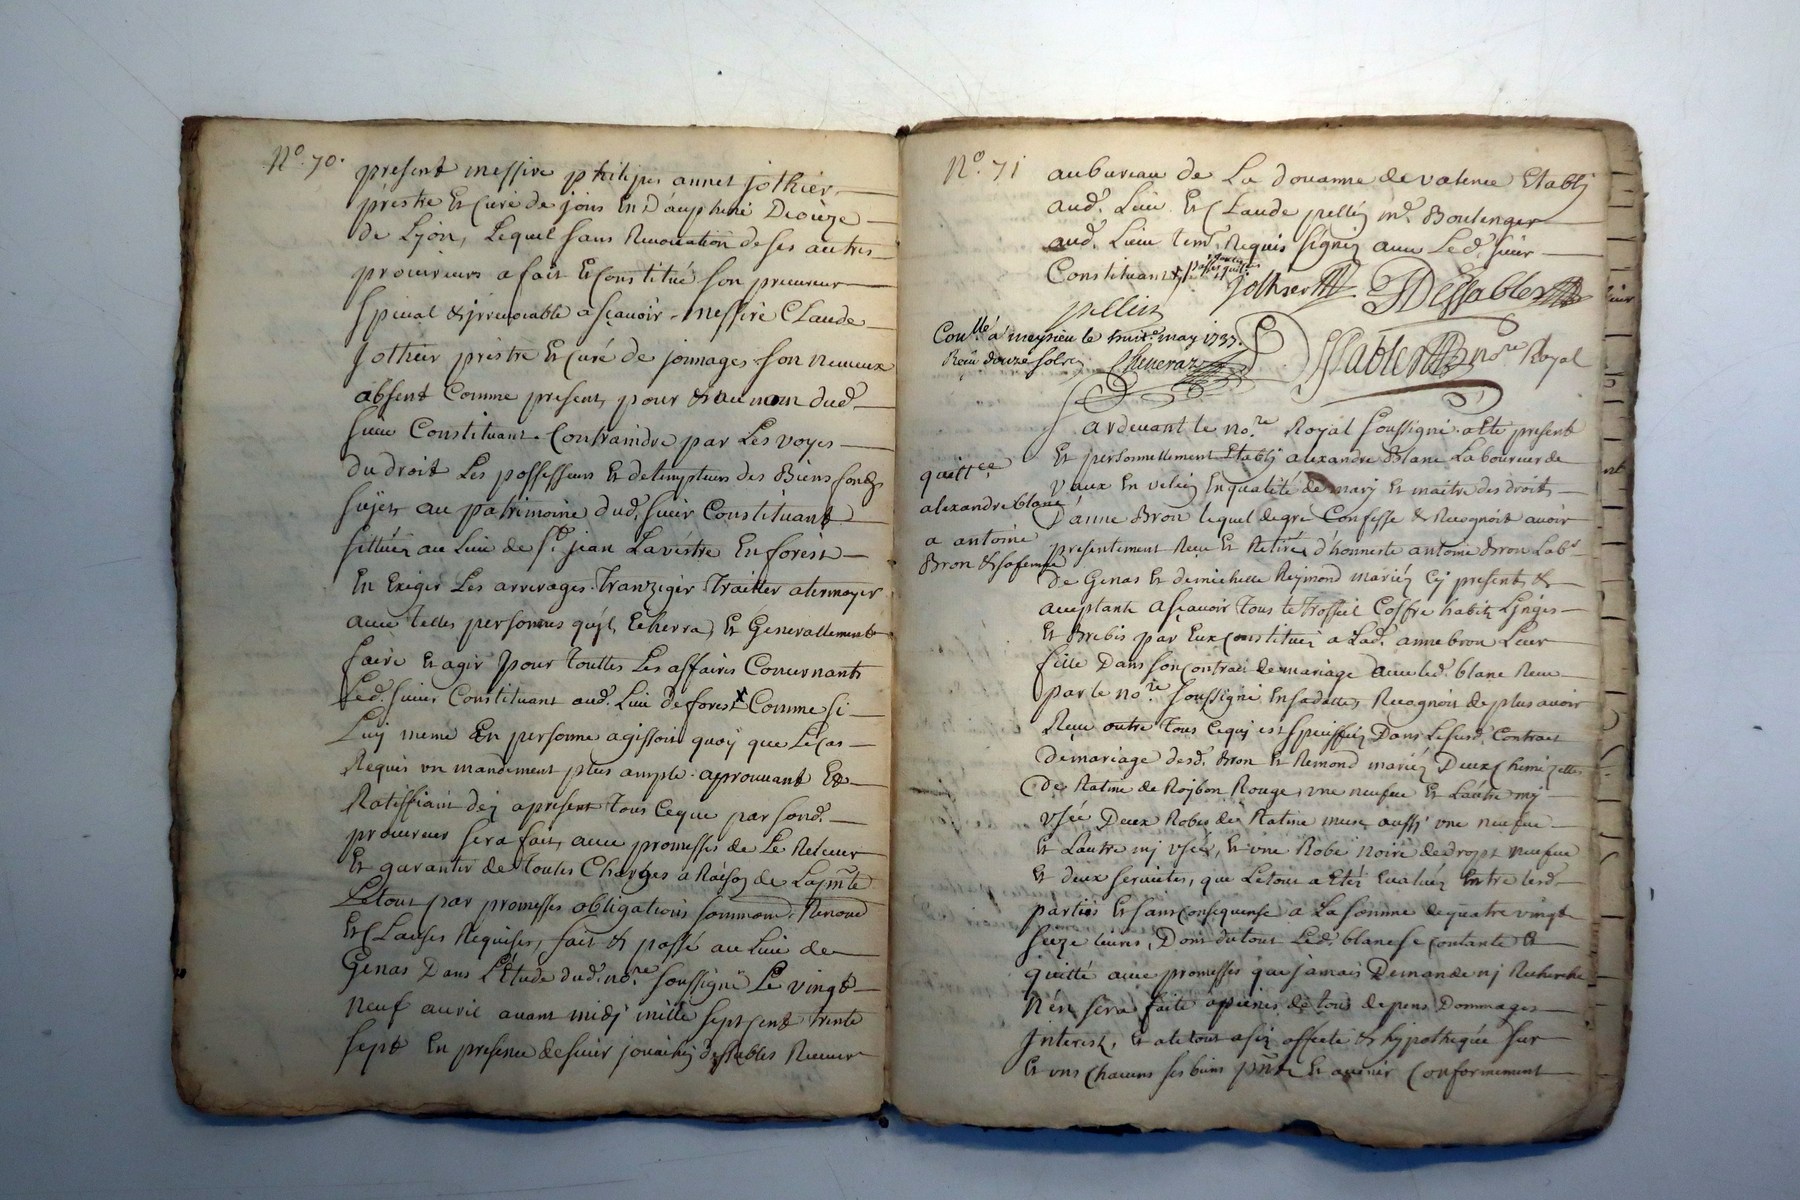 N.° 70.
present messire philipes annet jothier
prestre Et Curé de jons En Dauphiné Diocèze
de Lyon, Lequel sans Revocation de ses autres
procureurs a fait Et Constitué son procureur
special & irrevocable asçavoir messire Claude
Jothier prestre Et Curé de jonnages son neuveux
absent Comme present, pour & au nom dud.
sieur Constituant Contraindre par Les voyes
du droit Les possesseurs Et detempteurs des Biens fonds
sujets au patrimoine dud. sieur Constituant
sittuéz au Lieu de st. jean Lavestre En forest
En Exiger Les arrerages Tranziger Traitter atermoyer
avec telles personnes qu'il Echerra, Et Generallement
faire Et agir pour touttes Les affaires Concernants
Led. sieur Constituant aud. Lieu de forest x Comme si
Luy meme En personne agissoit quoy que Le Cas
Requis un mandement plus ample aprouvant Et
Ratiffiant déz apresent tous Ceque par sond.
procureur sera fait, avec promesses de Le Relever
Et garantir de toutes Charges a Raison de Laprnte
Letout par promesses obligations soumons Renonc
Et Clauses Requises, fait & passé au Lieu de
Genas Dans L'Etude dud. no.re soussigné Le vingt
neuf avril avant midy mille sept cent trente
sept En presence de sieur joachin dessables Receveur
N.° 71
au bureau de La douanne de valence Etably
aud. Lieu Et Claude pelléz md. Boulenger
aud. Lieu tem. Requis signéz avec Led. sieur
Constituant
Jothier Dessables
pellin
Coll.é a meysieu le huit.e may 1737.
Reçu douze sols Cheneraz
Dessables no.re Royal
Pardevant le no.re Royal soussigné atte present
Et personnellement Etably alexandre Blanc Laboureur de
vaux En velin Enqualité de mary Et maitre des droits
D'anne Bron lequel degré Confesse & Recognoit avoir
presentement Reçu Et Retiré d'honneste antoine Bron Lab.r
de Genas Et demichelle Reymond mariéz Cy presents &
acceptants asçavoir tous le trossel Coffre habits Linges
Et Brebis par Eux Constitués a Lad. anne bron Leur
fille Dans son Contract de mariage avec led. blanc Receu
par le no.re soussigné Ensadatte, Recognoit de plus avoir
Receu outre tous Cequi est speciffiéz Dans Lesusd. Contract
de mariage desd. Bron Et Remond mariéz Deux Chemizettes
de Ratine de Roybon Rouge, une neufue Et Lautre my
usée Deux Robes de Ratine aussy une neufue
Et Lautre my usée, Et une Robe noire de drapt neufue
Et deux serviettes, que Letout a Eté Evalué Entre lesd.
parties Et sans Consequense a La somme dequatre vingt
seize livres, Dont dutout Led. blanc se contante &
quitté avec promesses que jamais Demande nj Recherche
N'en sera faite apeines de tous depens Dommages
Interest, Et aletout a Esté affecté & hypothequé sur
Et uns Chacuns ses biens pnts Et avenir Conformement
quitt.ce
alexandre blanc
a antoine
Bron & sa femme